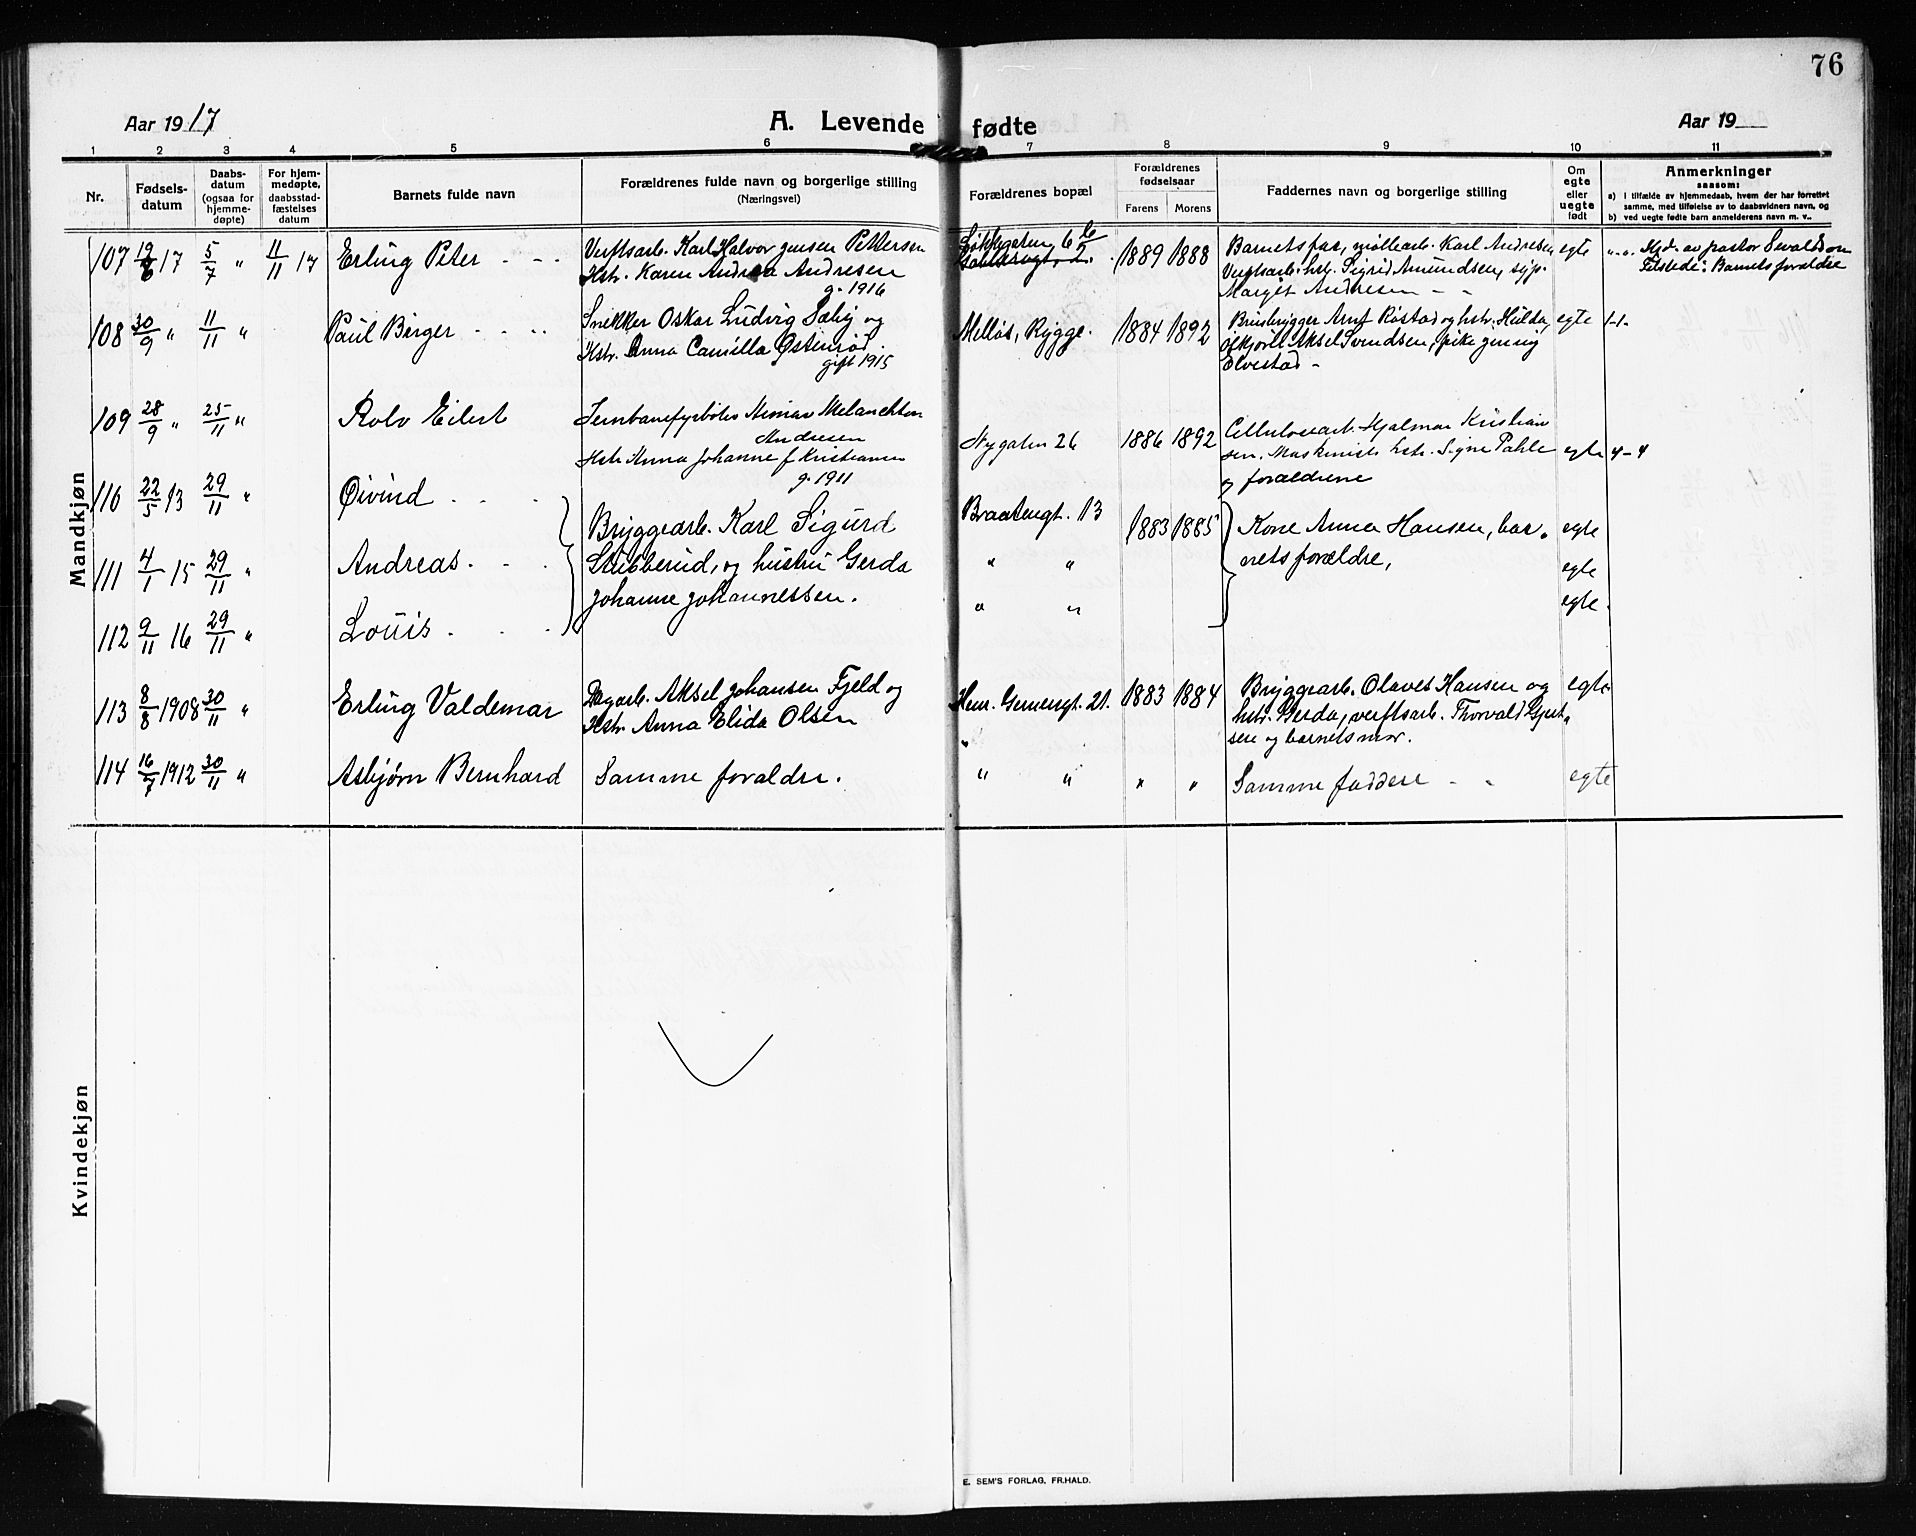 76
Aar 1917
A. Levende fødte
Aar 19
1 2 3 4 5 6 7 8 9 10 11
Nr.
Fødsels-
datum
Daabs-
datum
(ogsaa for
hjemme-
døpte)
For hjem-
medøpte,
daabsstad-
fæstelses
datum
Barnets fulde navn
Forældrenes fulde navn og borgerlige stilling
(Næringsvei)
Forældrenes bopæl
Forældrenes
fødselsaar
Farens Morens
Faddernes navn og borgerlige stilling
Om
egte
eller
uegte
født
Anmerkninger
saasom:
a) I tilfælde av hjemmedaab, hvem der har forrettet
samme, med tilføielse av to daabsvidners navn, og
b) ved uegte fødte barn anmelderens navn m. v..
Mandkjøn
107 17 5/7 " 11/11 17 Erling Peter
Verftsarb. Karl Halvor Jensen Pettersen
Hstr. Karen Andrea Andresen
g. 1916
Løkkegaten 6
1889 1888
Barnets far, møllearb. Karl Andresen,
Verftsarb. hst. Sigrid Amundsen, syp.
Margit Andresen
egte
Hjd. av pastor Sevaldson
Tilstede: Barnets forældre
108 30/9 " 11/11 " Paul Birger
Snekker Oskar Ludvig Sæby og
Hstr. Anna Camilla Østenrød.
gift 1915
Melløs, Rygge.
1884 1892
Brusbrygger Arnt Røstad og hstr. Hulda,
Aksel Svendsen, pike Jenny
Elvestad -
egte 1-1-
109 28/9 " 25/11 " Rolv Eilert
Jernbanefyrbøter Melanchton
Andresen
Hstr. Anna Johanne f. Kristiansen
g. 1911
Nygaten 26
1886 1892
Cellulosearb. Hjalmar Kristian
sen, Maskinists hstr. Signe Pahle
og forældrene
egte 4-4
110 22/5 13 29/11 " Øivind
111 4/1 15 29/11 " Andreas
112 9/11 16 29/11 " Louis
Bryggearb. Karl Sigurd
Stubberud, og hustru Gerda
Johanne Johannessen.
Braatengt. 13
" "
" "
1883 1885
Kone Anna Hansen, bar-
nets forældre,
egte
egte
egte.
113 8/8 1908 30/11 " Erling Valdemar
Dagarb. Aksel Johansen Fjeld og
Hstr. Anna Elida Olsen
Henr. Gernersgt. 21.
1883 1884
Bryggearb. Olaves Hansen og
hstr. Gerda, verftsarb. Thorvald Gjert-
sen og barnets mor.
egte
114 16/7 1912 30/11 " Asbjørn Bernhard
Samme forældre.
" " " "
Samme faddere
egte
Kvindekjøn
E. SEM'S FORLAG. FR.HALD.